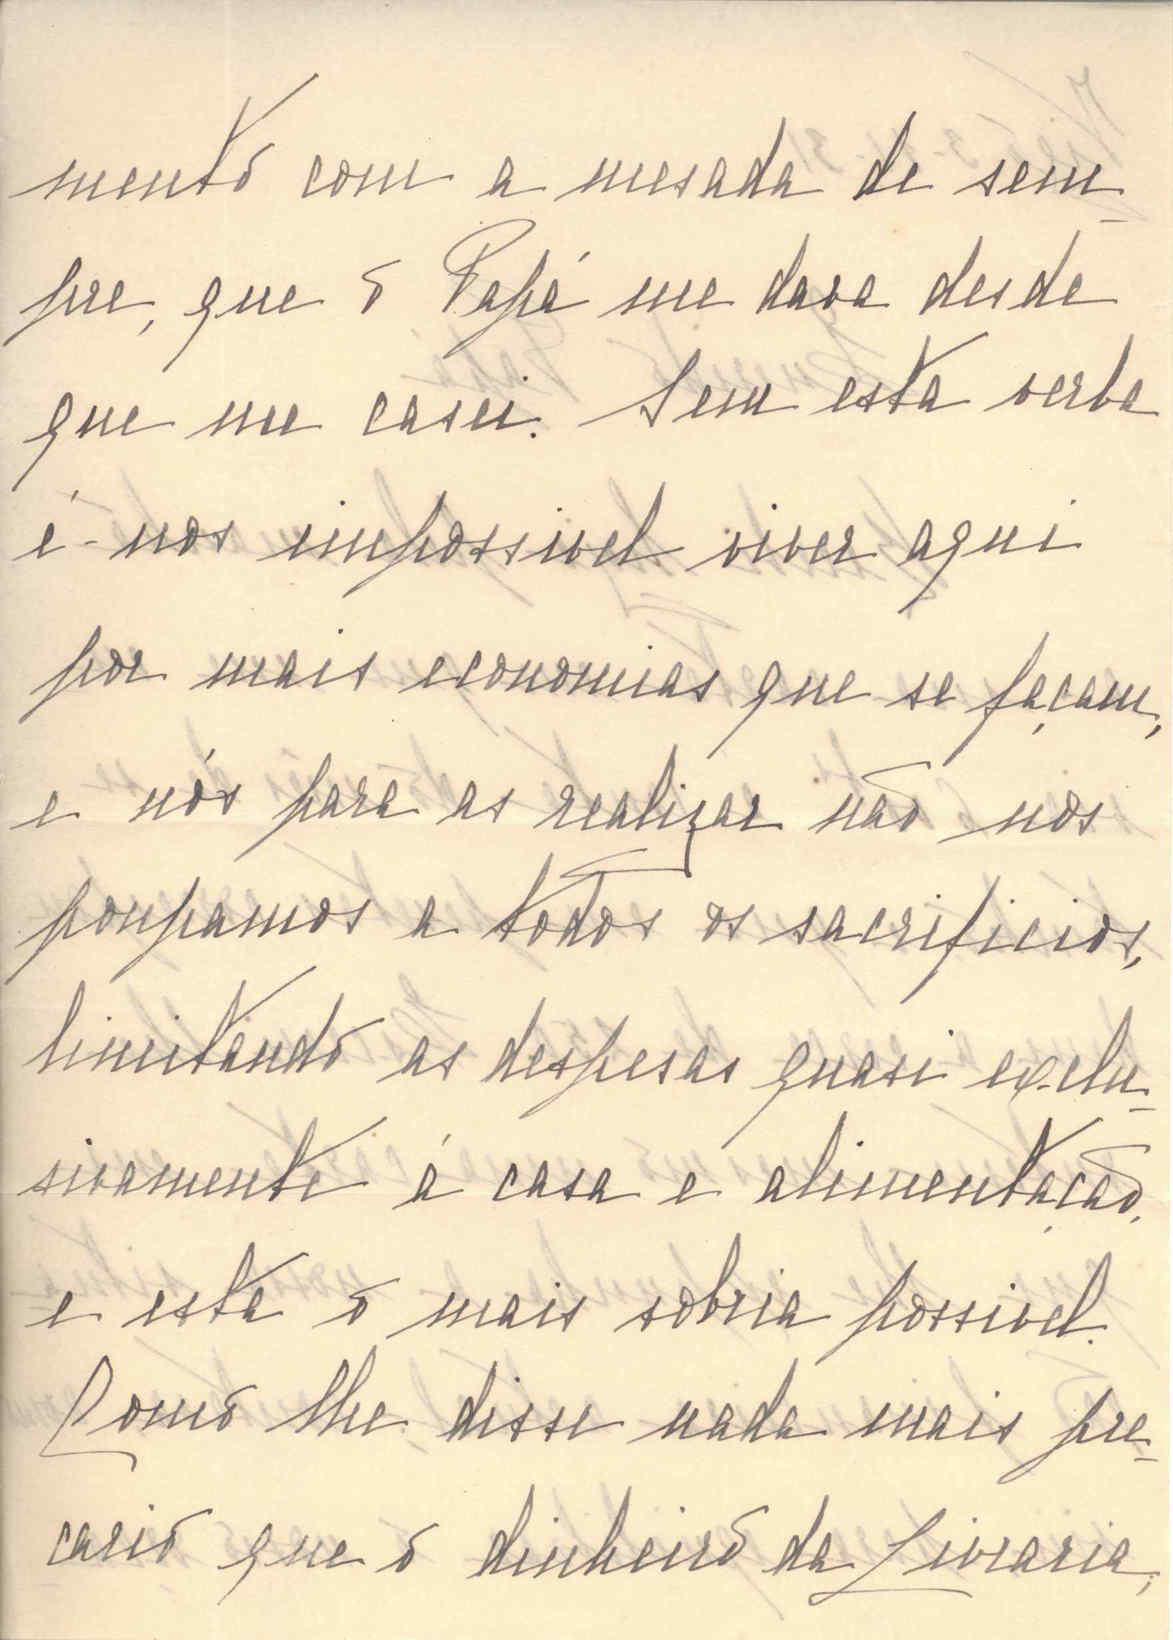 mento com a mesada de sem-
pre, que o Papá me dava desde
que me casei. Sem esta verba
é-nos impossivel viver aqui
por mais economias que se façam,
e nós para as realizar não nos
poupamos a todos os sacrificios,
limitando as despesas quasi exclu-
sivamente á casa e alimentação,
e esta o mais sobria possivel.
Como lhe disse nada mais pre-
cario que o dinheiro da Livraria,